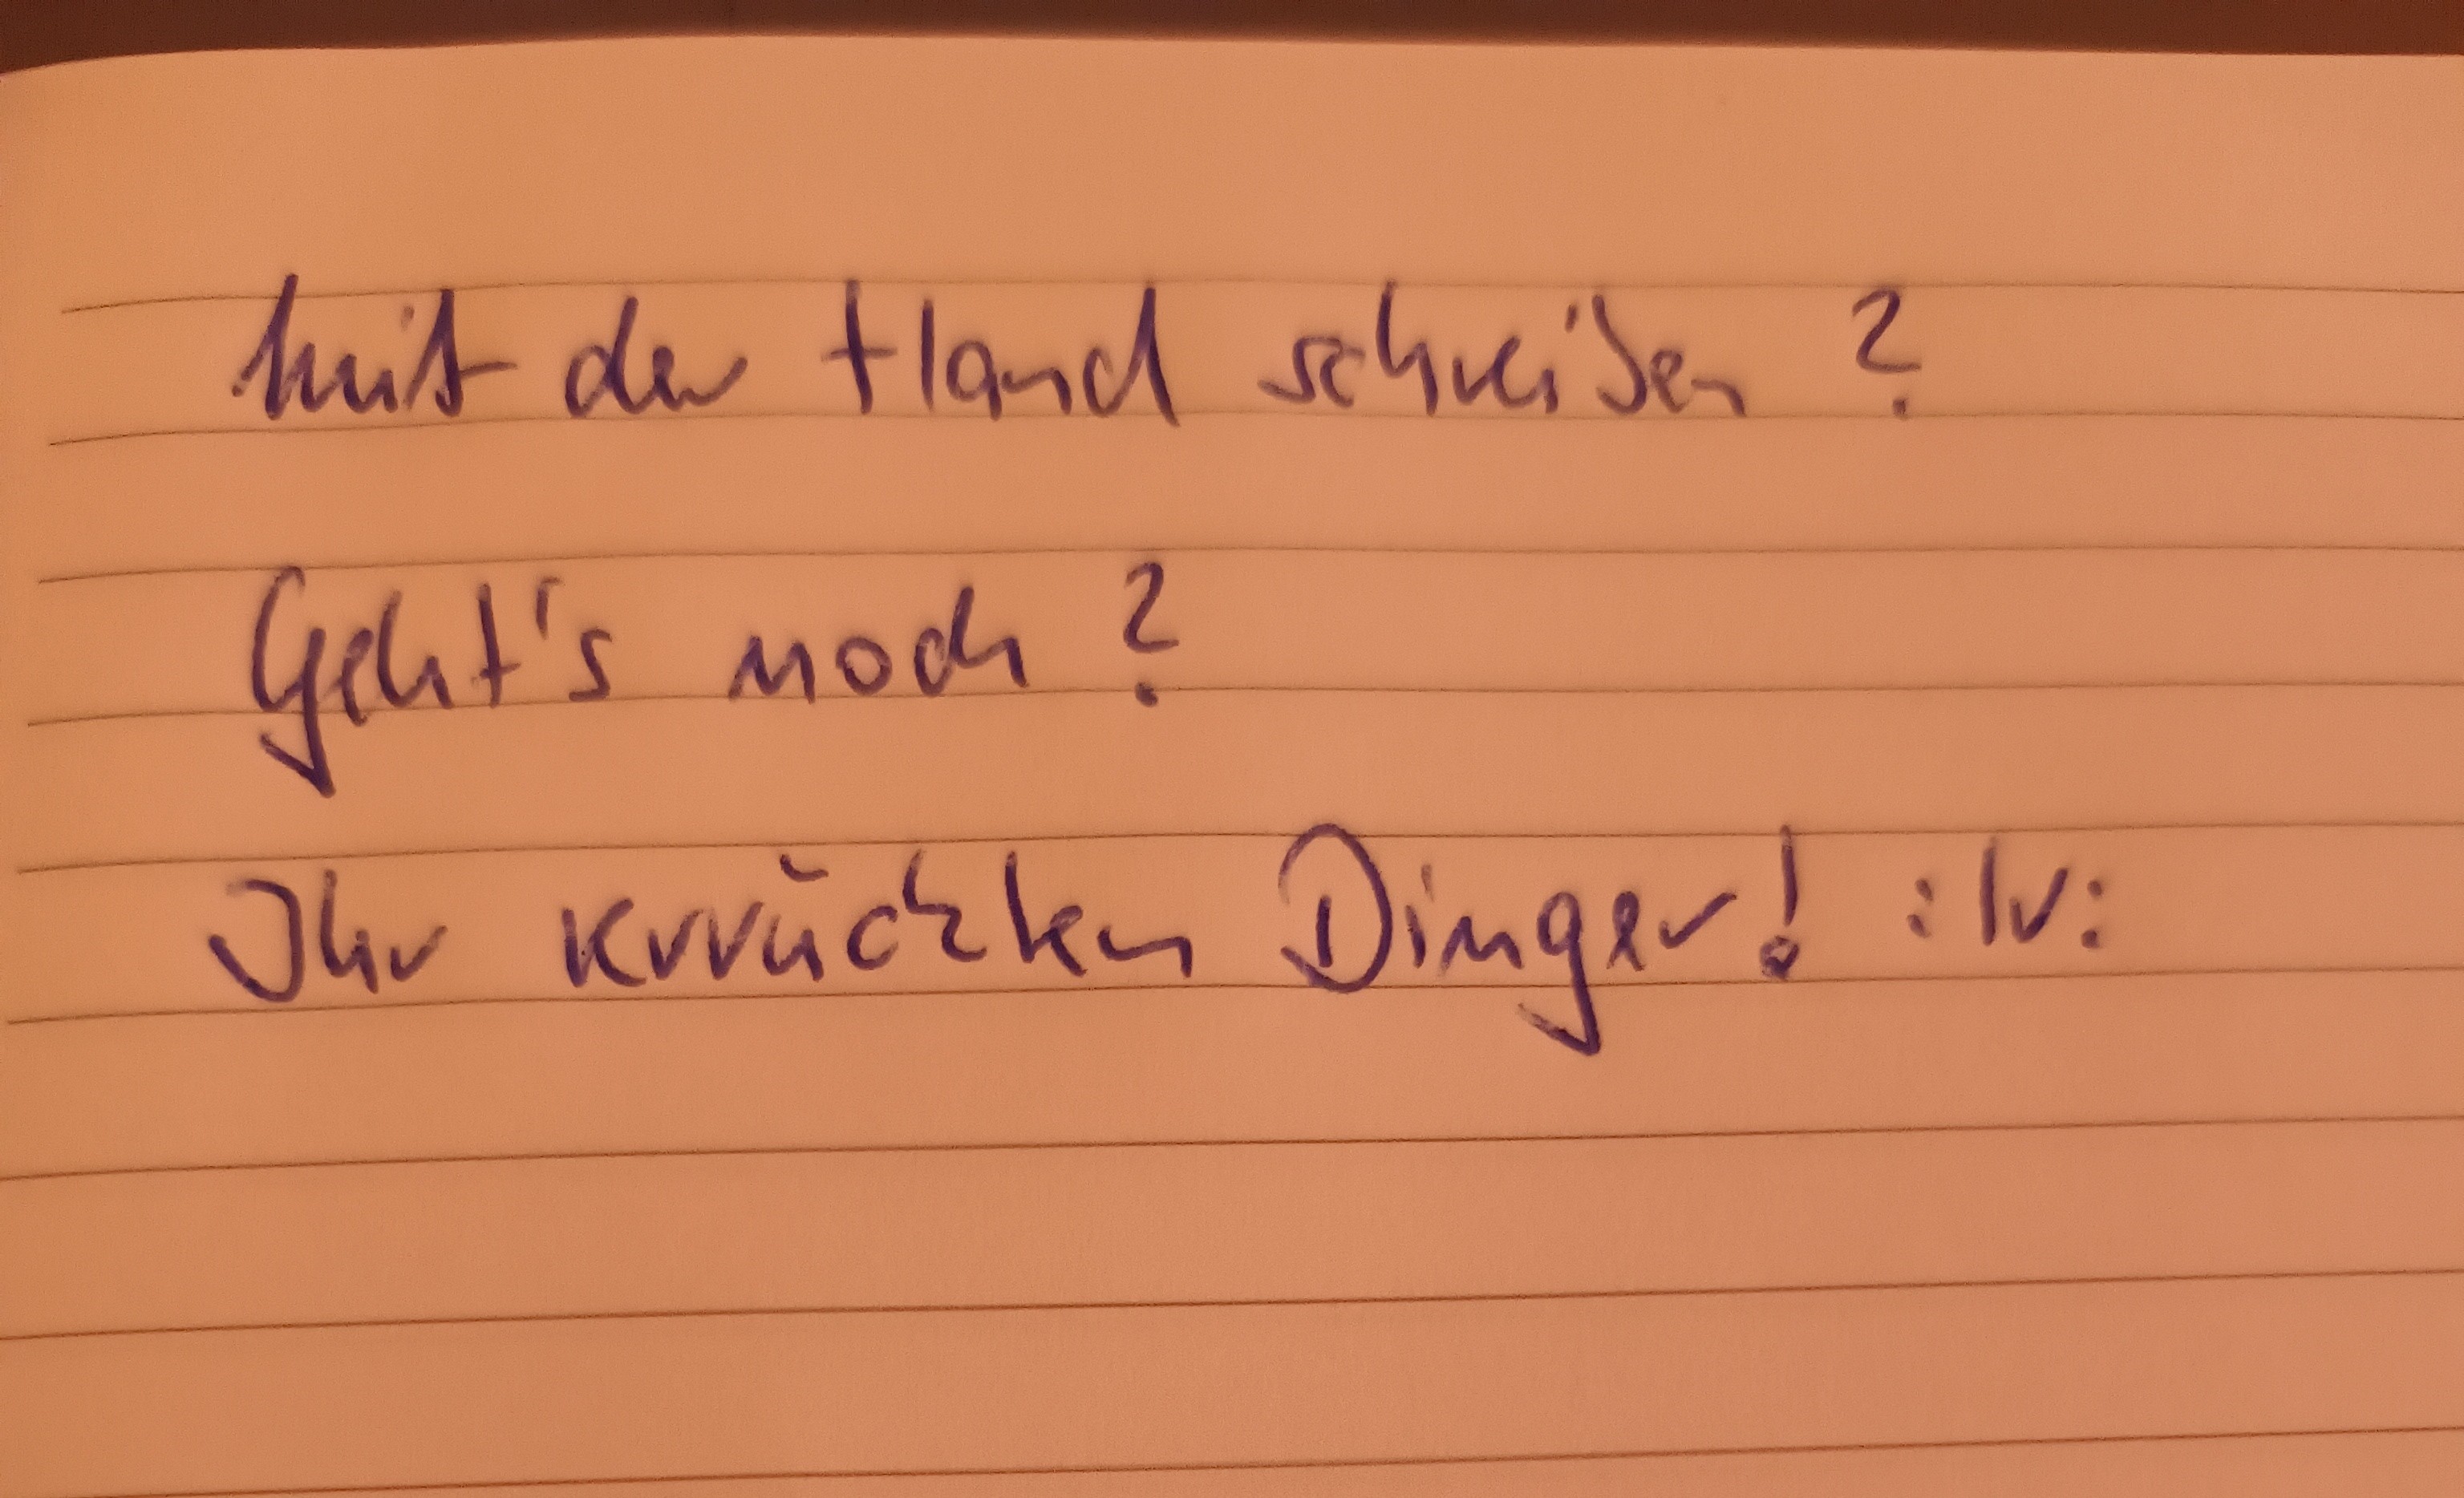 Mit der Hand schreiben?
Geht's noch?
Ihr verrückten Dinger! :lv: